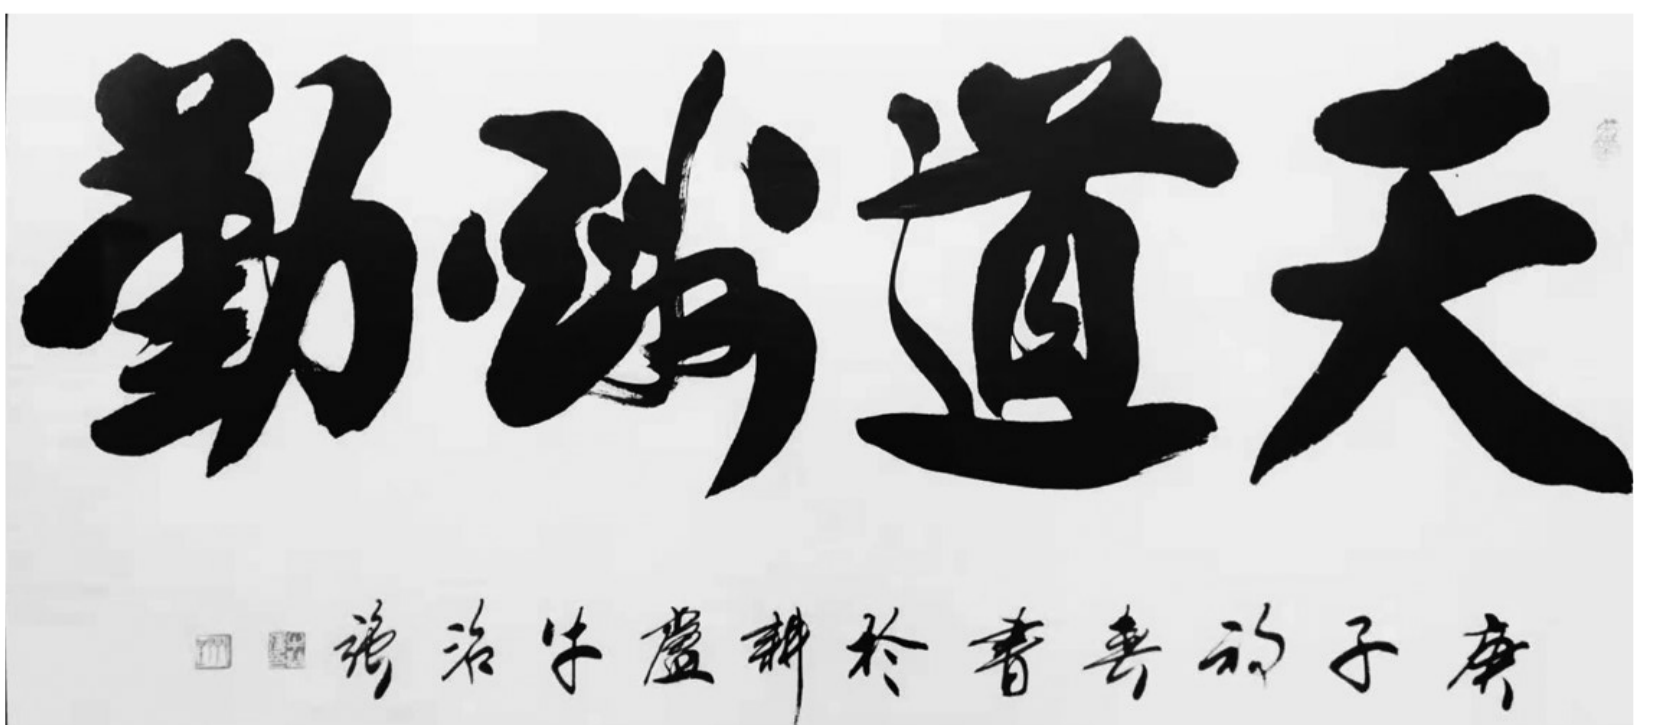 天道酬勤
庚子初春書於耕盧牛治強